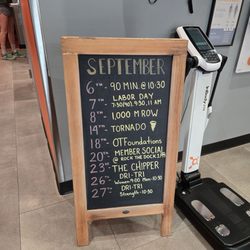 SEPTEMBER
6TH - 90 MIN. @ 10:30
LABOR DAY
7TH - 7:30(90), 9:30, 11 AM
8TH - 1,000 M ROW
14TH - TORNADO
18TH - OTFoundations
20TH - MEMBER SOCIAL
@ ROCK THE DOCK
23RD - THE CHIPPER
26TH - DRI-TRI
10:30
27TH - DRI-TRI
Strength - 10:30